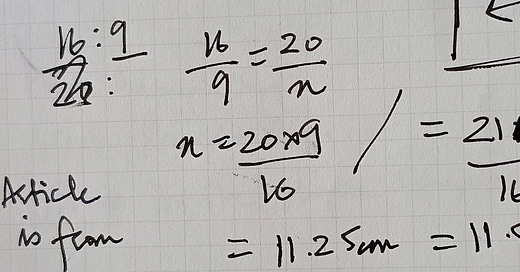 16:9
20:
16/9 = 20/n
n = 20x9/16
= 21
16
Article
is from
= 11.25cm = 11.